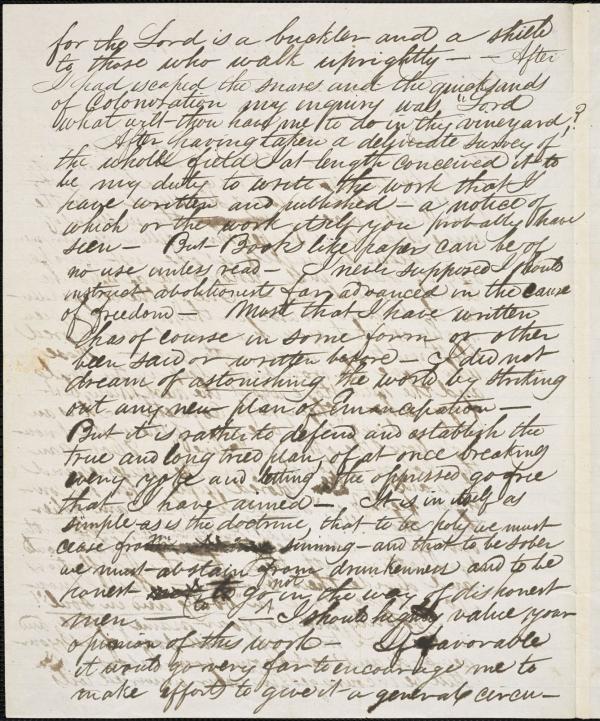 for the Lord is a buckler and a shield
to those who walk uprightly — — After
I had escaped the snares and the quicksands
of Colonization my inquiry was "Lord
what wilt thou have me to do in thy vineyard"?
After having taken a deliberate survey of
the whole field I at length conceived it to
be my duty to write the work that I
have written and published — a notice of
which or the work itself you probably have
seen — But Books like papers can be of
no use unless read — I never supposed I should
instruct abolitionists far advanced in the cause
of freedom — Most that I have written
has of course in some form or other
been said or written before — I did not
dream of astonishing the world by striking
out any new plan of Emancipation —
But it is rather to defend and establish the
true and long tried plan of at once breaking
every yoke and letting the oppressed go free
that I have aimed — It is in itself as
simple as is the doctrine, that to be holy we must
cease from sinning — and that to be sober
we must abstain from drunkenness and to be
honest not to go in the way of dishonest
men — I should highly value your
opinion of this work — If favorable
it would go very far to encourage me to
make efforts to give it a general circu—